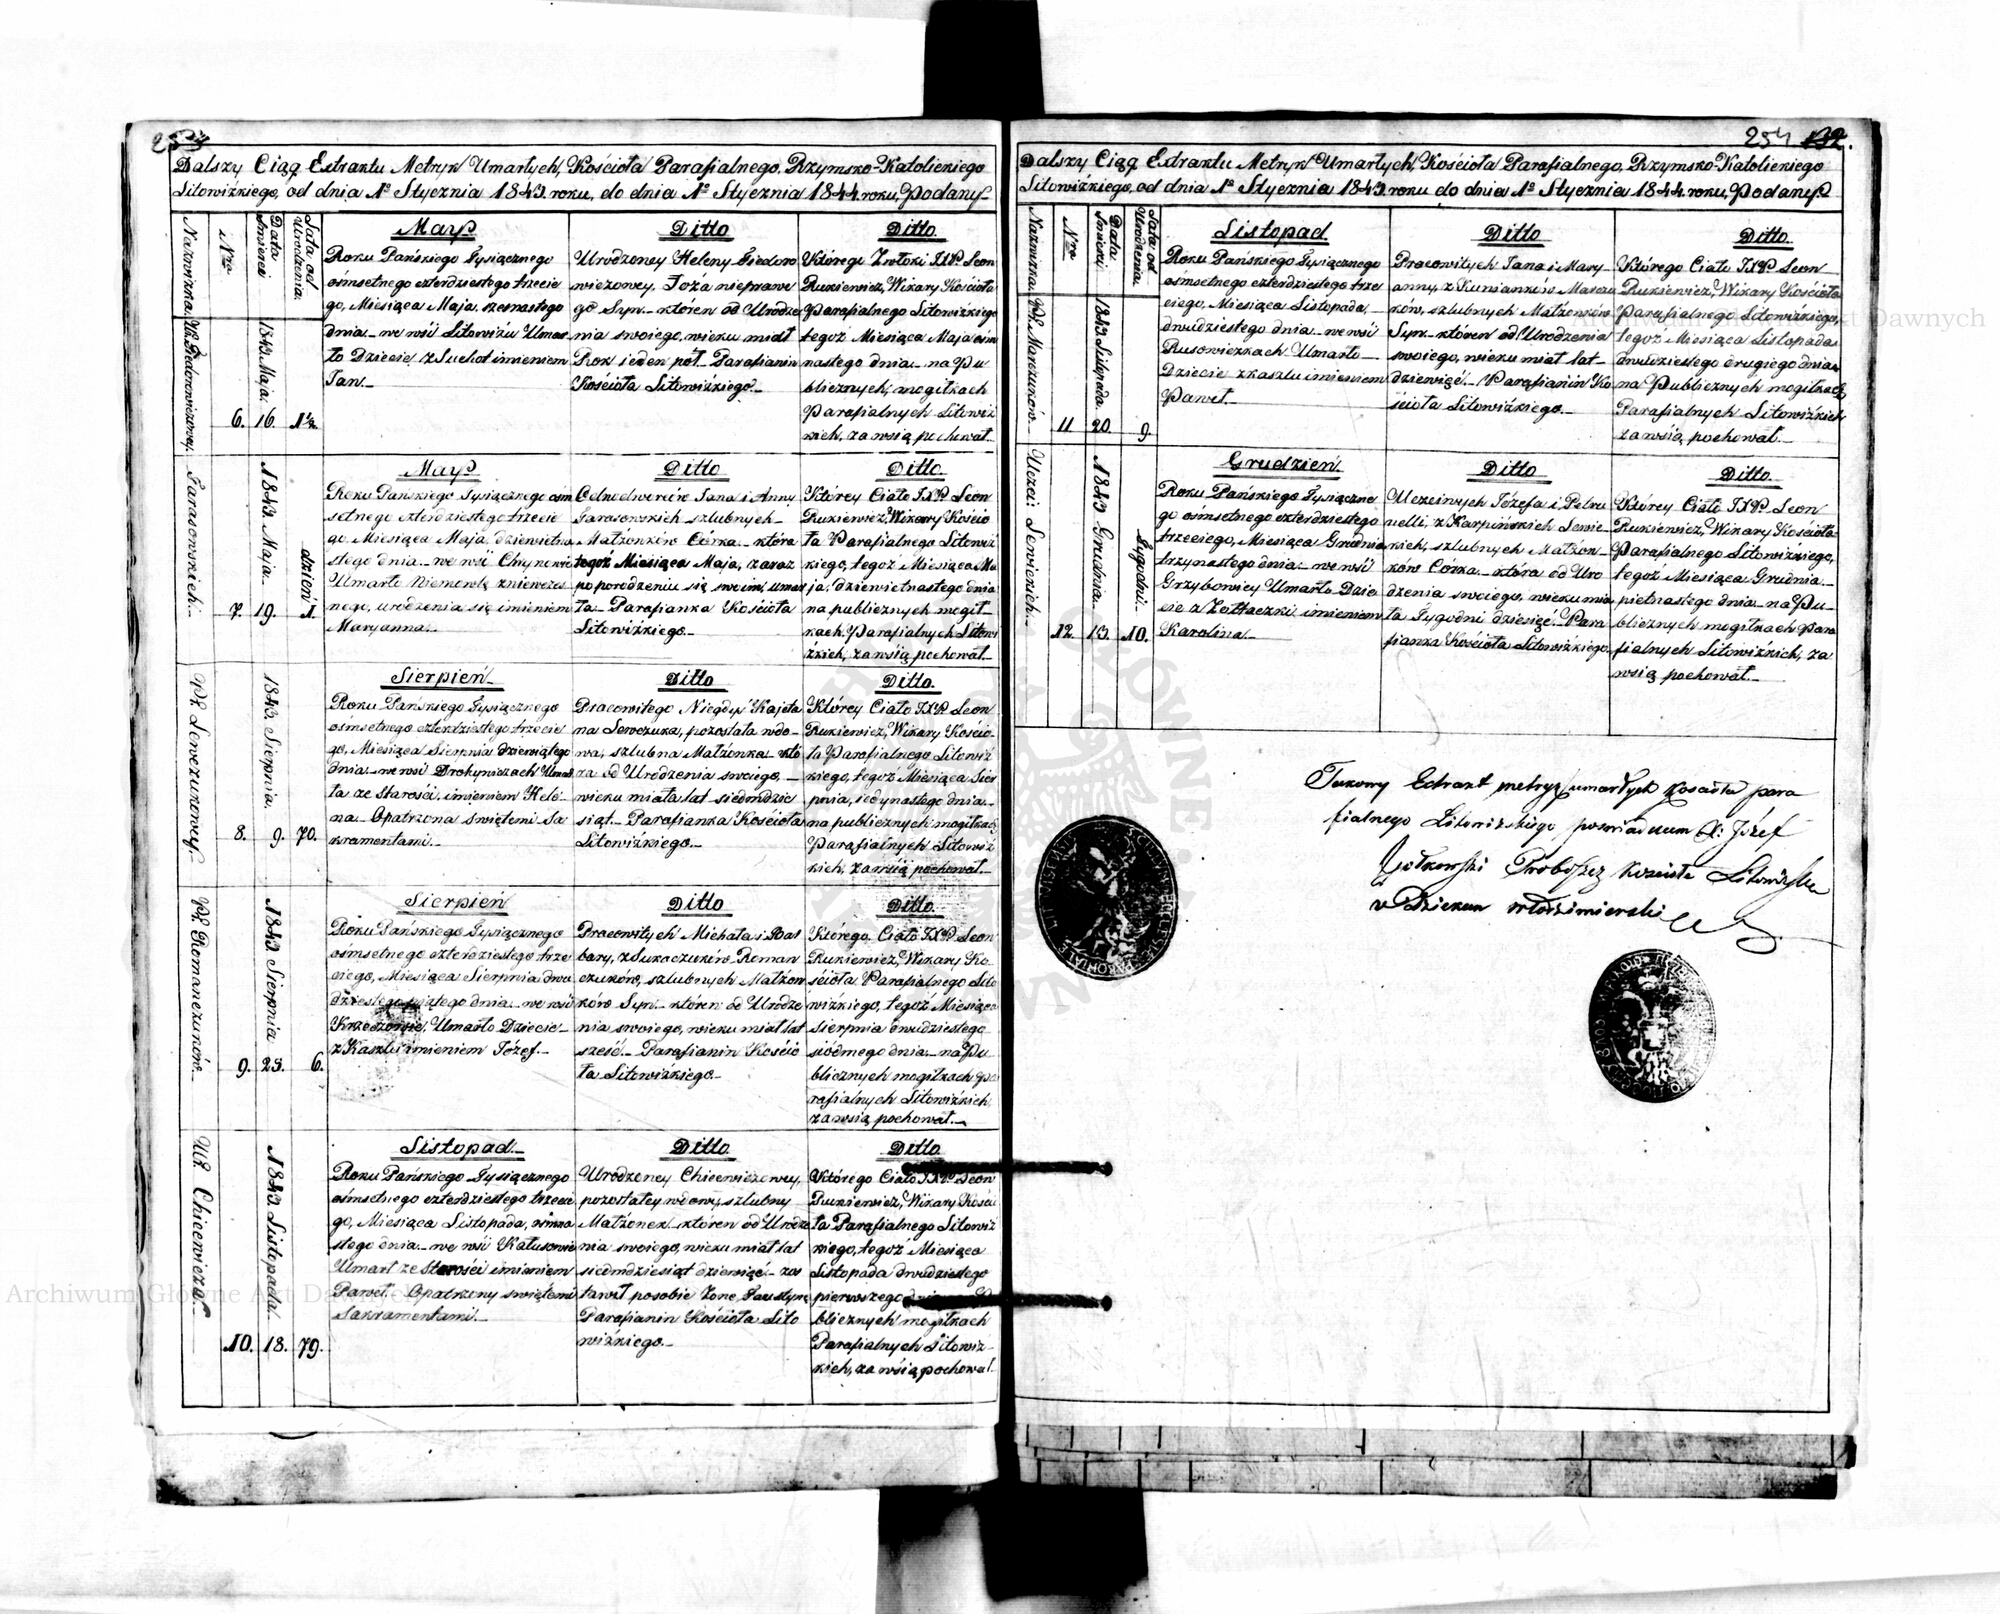 253
Dalszy Ciąg Extraktu Metryk Umarłych, Kościoła Parafialnego, Rzymsko-Katolickiego
Litowizkiego, od dnia 1º Stycznia 1843. roku, do dnia 1º Stycznia 1844. roku, Podany.
Nazwiska.
Nro
Data Śmierci
Lata od Urodzenia.
6.
1843. Maja.
16.
1½
May
Roku Pańskiego Tysiącznego
ośmsetnego czterdziestego trzecie
go, Miesiąca Maja, szesnastego
dnia we wsi Litowiżu Umar
ło Dziecie z Suchot imieniem
Jan.
Ditto
Urodzoney Heleny Fiedoro
wiczowey. Łoża niepraw
go Syn któren od Urodze
nia swoiego, wieku miał
Rok ieden pół Parafianin
Kościoła Litowizkiego.
Ditto.
Którego Zwłoki JXP. Leon
Rukiewicz, Wikary Kościoła
Parafialnego Litowizkiego
tegoż Miesiąca Maja ośm
nastego dnia na Pu
blicznych mogiłkach
Parafialnych Litowiz
kich, za wsią pochował.
7.
1843. Maja.
19.
dzień
1.
May
Roku Pańskiego Tysiącznego ośm
setnego czterdziestego trzecie
go, Miesiąca Maja, dziewietna
stego dnia we wsi
Umarło Niemowlę z niewczes
nego, urodzenia się imieniem
Maryanna.
Ditto
Jana i Anny
szlubnych
Małżonków Córka która
tegoż Miesiąca Maja, zaraz
po porodzeniu się swoim, umar
ła Parafianka Kościoła
Litowizkiego.
Ditto.
Którey Ciało JXP. Leon
Rukiewicz, Wikary Kościo
ła Parafialnego Litowiz
kiego, tegoż Miesiąca Ma
ja, dziewietnastego dnia
na publicznych mogił
kach Parafialnych Litowi
zkich, za wsią pochował.
8.
1843. Sierpnia.
9.
70.
Sierpień
Roku Pańskiego Tysiącznego
ośmsetnego czterdziestego trzecie
go, Miesiąca Sierpnia dziewiątego
dnia we wsi Umar
ła ze Starości, imieniem Hele
na Opatrzona Swiętemi Sa
kramentami.
Ditto
Pracowitego Niegdyś Kajeta
na Lewczuka, pozostała wdo
wa, szlubna Małżonka któ
ra od Urodzenia swoiego,
wieku miała lat siedmdzie
siąt. Parafianka Kościoła
Litowizkiego.
Ditto.
Którey Ciało JXP. Leon
Rukiewicz, Wikary Kościo
ła Parafialnego Litowiz
kiego, tegoż Miesiąca Sier
pnia, iedynastego dnia
na publicznych mogiłkach
Parafialnych Litowiz
kich, za wsią pochował.
9.
1843 Sierpnia
25.
6.
Sierpień
Roku Pańskiego Tysiącznego
ośmsetnego czterdziestego trze
ciego, Miesiąca Sierpnia dwu
dziestego piątego dnia we wsi
Umarło Dziecie
z Kaszlu imieniem Józef.
Ditto
Pracowitych Michała i Bar
bary, z Sukaczuków Roman
czuków, szlubnych Małżon
ków Syn któren od Urodze
nia swoiego, wieku miał lat
sześć. Parafianin Kościo
ła Litowizkiego.
Ditto.
Którego Ciało JXP. Leon
Rukiewicz, Wikary Ko
ścioła Parafialnego Lito
wizkiego, tegoż Miesiąca
Sierpnia dwudziestego
siódmego dnia na Pu
blicznych mogiłkach Pa
rafialnych Litowizkich,
za wsią pochował.
10.
1843 Listopada.
18.
79.
Listopad.
Roku Pańskiego Tysiącznego
ośmsetnego czterdziestego trzecie
go, Miesiąca Listopada,
stego dnia we wsi
Umarł ze Starości imieniem
Paweł Opatrzony świętemi
Sakramentami.
Ditto
Urodzoney
pozostałey wdowy, szlubny
Małżonek któren od Urodze
nia swoiego, wieku miał lat
siedmdziesiąt dziewięć zos
tawił po sobie Żonę
Parafianin Kościoła Lito
wizkiego.
Ditto.
Którego Ciało JXP. Leon
Rukiewicz, Wikary Kości
ła Parafialnego Litowiz
kiego, tegoż Miesiąca
Listopada dwudziestego
pierwszego
blicznych mogiłkach
Parafialnych Litowiz
kich, za wsią pochował.
254
Dalszy Ciąg Extraktu Metryk Umarłych, Kościoła Parafialnego, Rzymsko-Katolickiego
Litowizkiego, od dnia 1º Stycznia 1843 roku do dnia 1º Stycznia 1844. roku, Podany.
Nazwiska.
Nro
Data Śmierci
Lata od Urodzenia.
11
1843 Listopada.
20.
9.
Listopad.
Roku Pańskiego Tysiącznego
ośmsetnego czterdziestego trze
ciego, Miesiąca Listopada,
dwudziestego dnia we wsi
Rusowiczkach Umarło
Dziecie z kaszlu imieniem
Paweł
Ditto
Pracowitych Jana i Mary
anny, z
ków, szlubnych Małżonków
Syn któren od Urodzenia
swoiego, wieku miał lat
dziewięć. Parafianin Ko
ścioła Litowizkiego.
Ditto.
Którego Ciało JXP. Leon
Rukiewicz, Wikary Kościoła
Parafialnego Litowizkiego,
tegoż Miesiąca Listopada
dwudziestego drugiego dnia
na Publicznych mogiłkach
Parafialnych Litowizkich
za wsią pochował.
12.
1843 Grudnia.
13.
Tygodni.
10.
Grudzień
Roku Pańskiego Tysiączne
go ośmsetnego czterdziestego
trzeciego, Miesiąca Grudnia
trzynastego dnia we wsi
Grzybowicy Umarło Dzie
cie z Żółtaczki imieniem
Karolina.
Ditto
Uczciwych Józefa i Petro
nelli, z Karpińskich Lewic
kich, szlubnych Małżon
ków Córka która od Uro
dzenia swoiego, wieku mia
ła Tygodni dziesięć. Para
fianka Kościoła Litowizkiego.
Ditto.
Którey Ciało JXP. Leon
Rukiewicz, Wikary Kościoła
Parafialnego Litowizkiego,
tegoż Miesiąca Grudnia
pietnastego dnia na Pu
blicznych mogiłkach Para
fialnych Litowizkich, za
wsią pochował.
Takowy Extrakt metryk umarłych Kościoła para
fialnego Litowizkiego poswiadczam X: Józef
Proboszcz Kościoła
Dziekan włodzimierski
Archiwum Główne Akt Dawnych